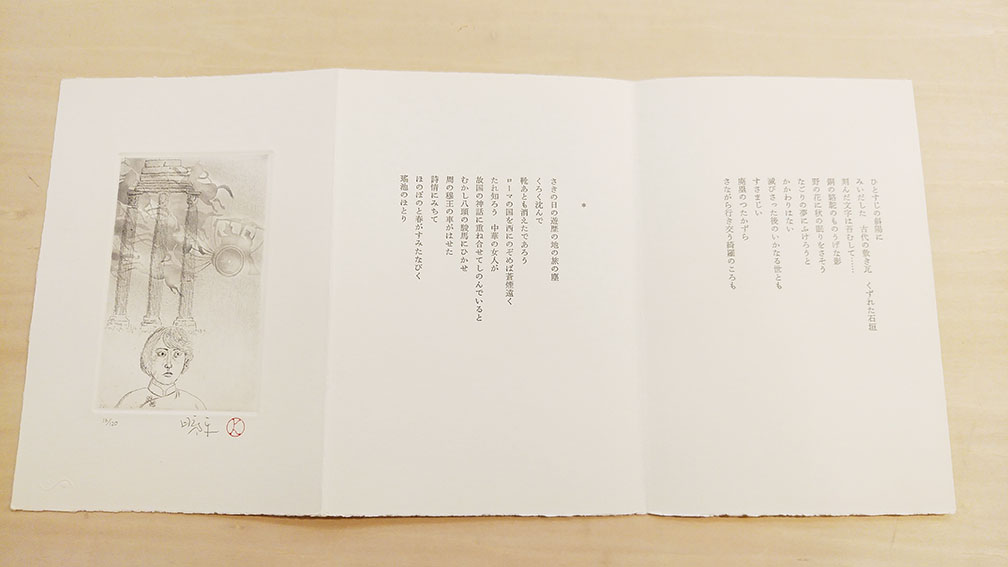 ひとすじの斜陽に
みいだした　古代の敷き瓦　くずれた石垣
刻んだ文字は苔むして……
銅の駱駝のものうげな影
野の花に秋の眠りをさそう
なごりの夢にふけろうと
かかわりはない
滅びさった後のいかなる世とも
すさまじい
廃墟のつたかずら
さながら行き交う綺羅のころも
＊
さきの日の遊歴の地の旅の塵
くろく沈んで
靴あとも消えたであろう
ローマの国を西にのぞめば蒼煙遠く
たれ知ろう　中華の女人が
故国の神話に重ね合せてしのんでいると
むかし八頭の駿馬にひかせ
周の穆王の車がはせた
詩情にみちて
ほのぼのと春がすみたなびく
瑤池のほとり